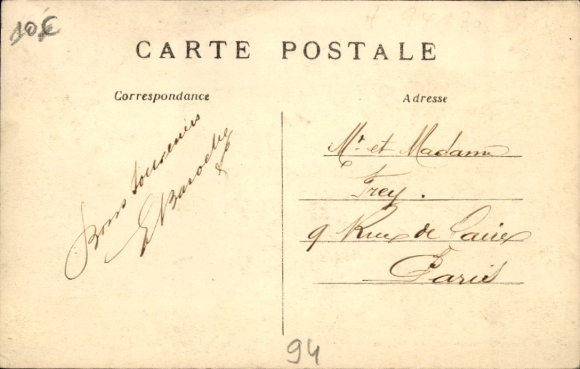 10€
CARTE POSTALE
Correspondance
Adresse
Bons Souvenirs
E Baroche
Mr. et Madame
Frey.
9 Rue de Caire
Paris
94